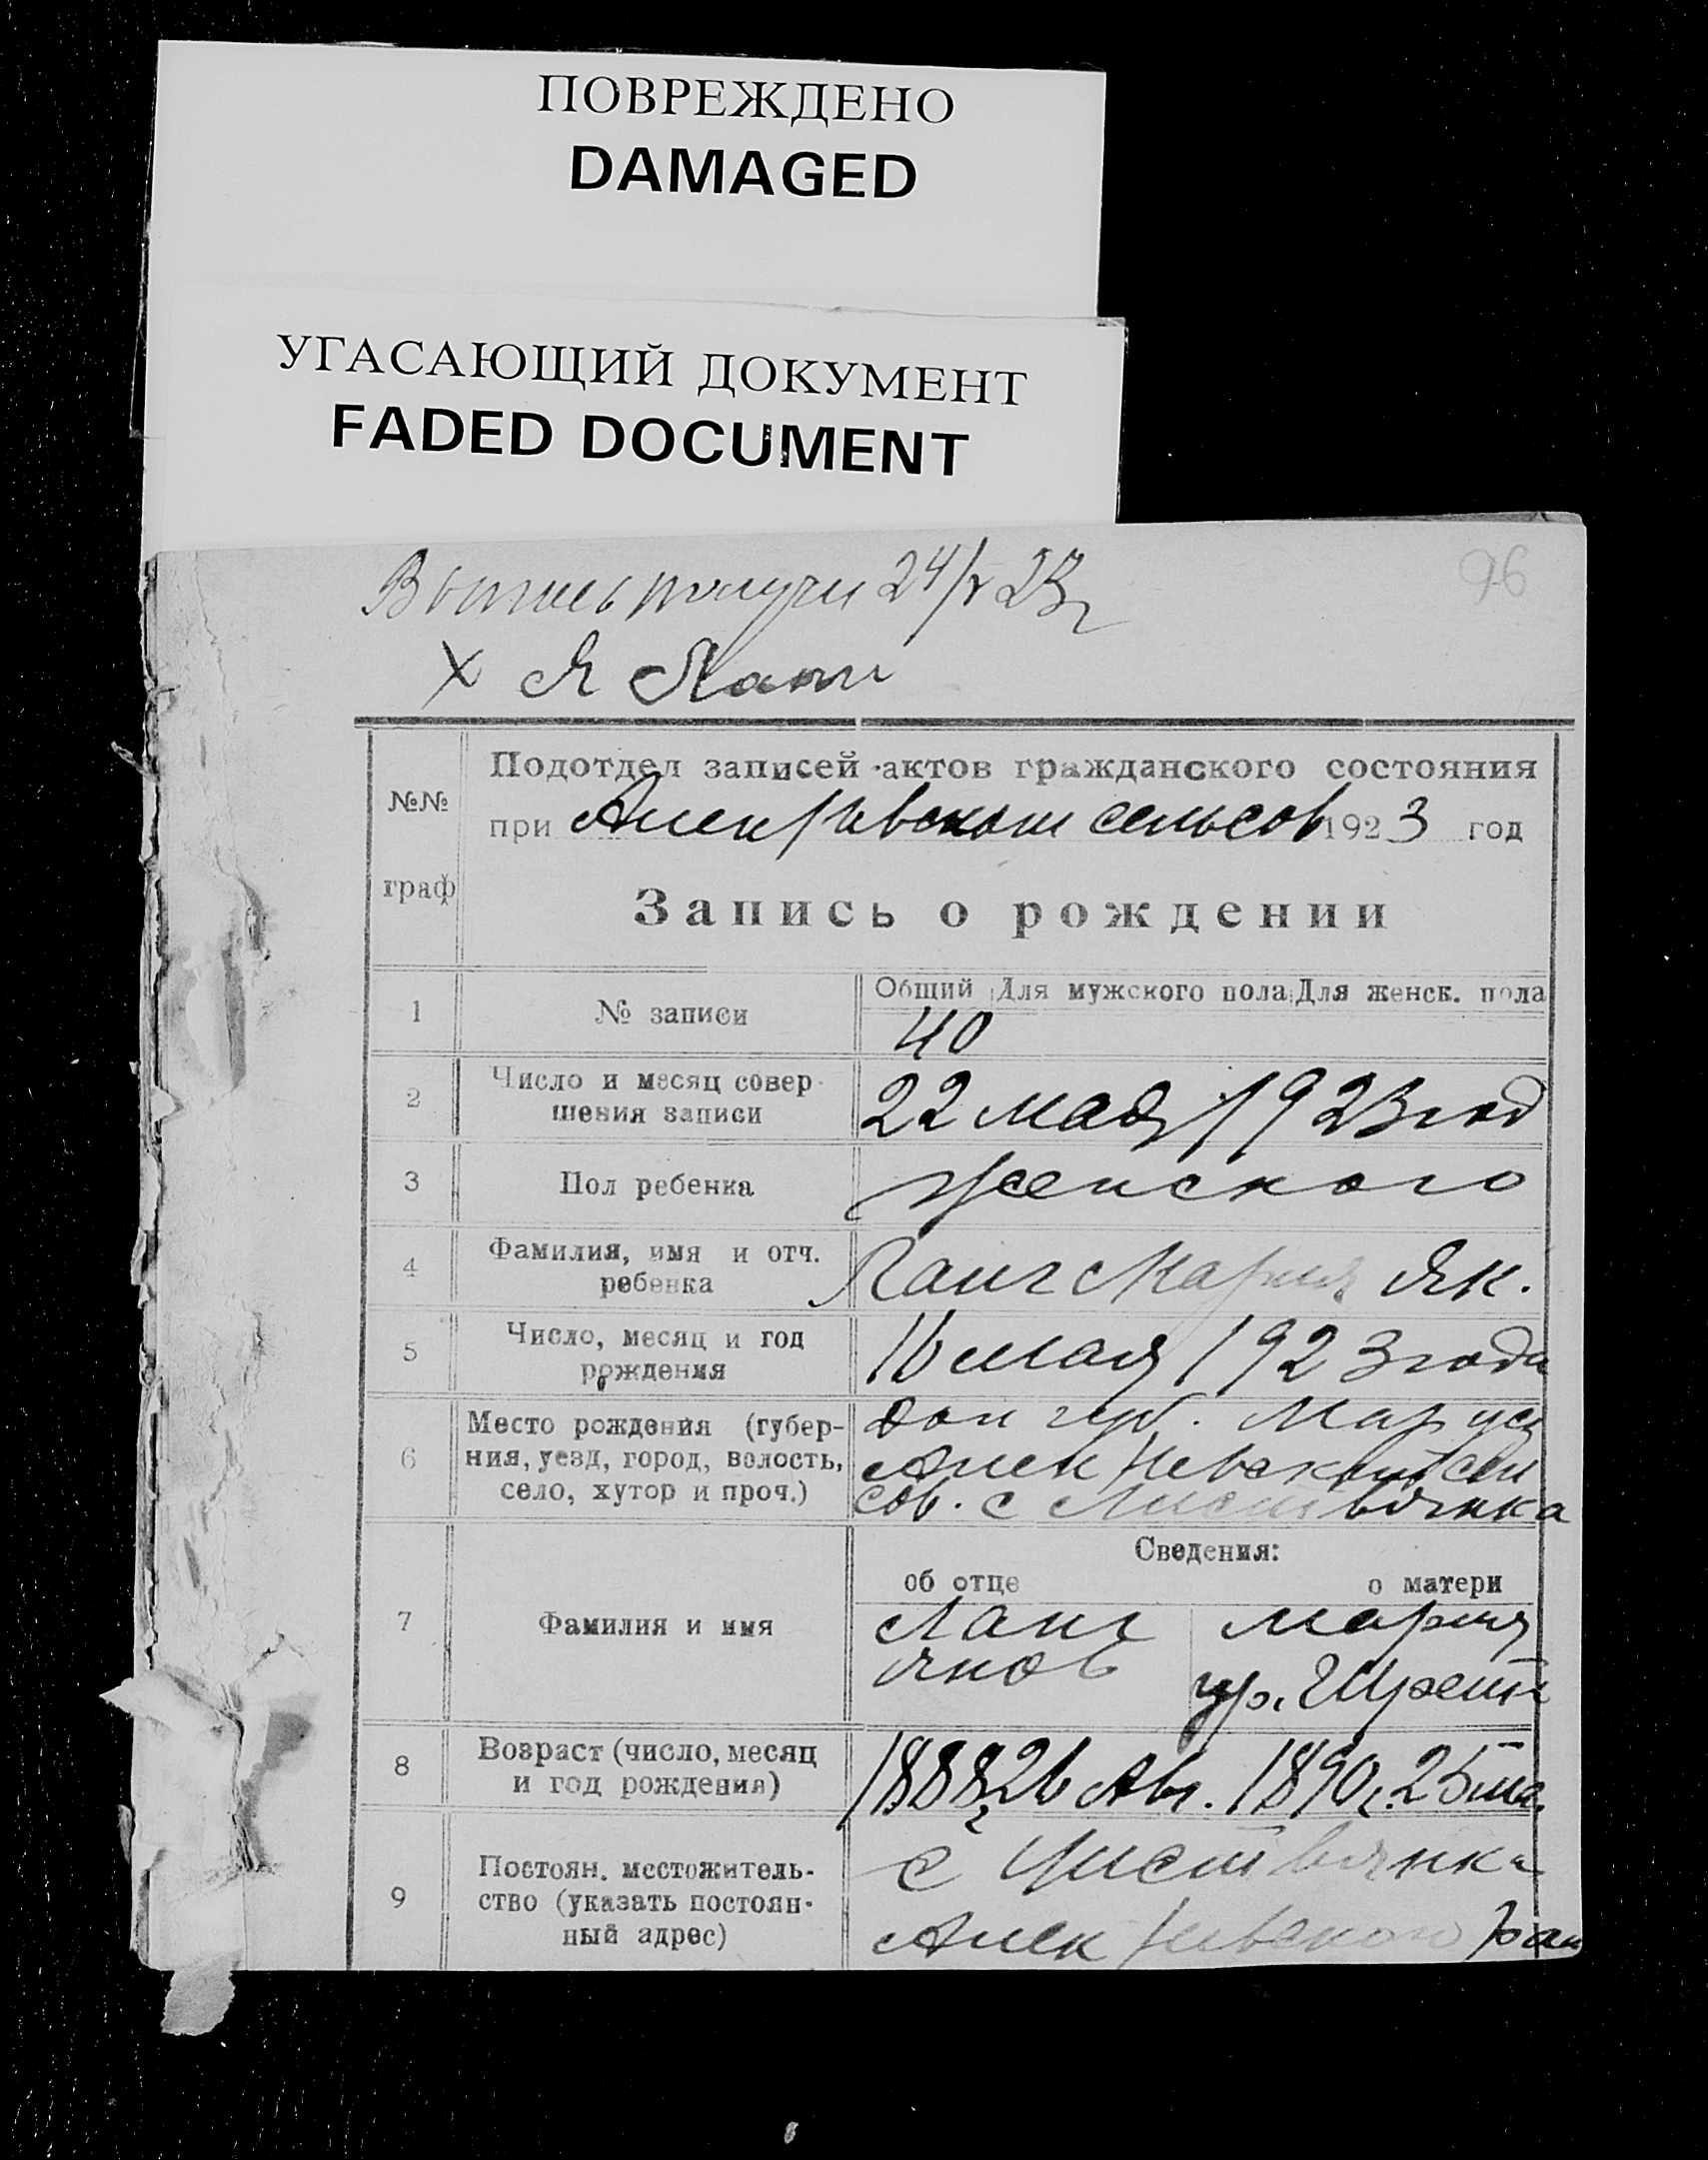 ПОВРЕЖДЕНО
DAMAGED
УГАСАЮЩИЙ ДОКУМЕНТ
FADED DOCUMENT
96
24/V 23г
х Я Ланг
Подотдел записей актов гражданского состояния
№№ при сельсов 1923 год
граф
Запись о рождении
Общий Для мужского пола Для женск. пола
1 № записи 40
2 Число и месяц совер-
шения записи 22 мая 1923 год
3 Пол ребенка женского
4 Фамилия, имя и отч.
ребенка Ланг Мария Як.
5 Число, месяц и год
рождения 16 мая 1923 года
6 Место рождения (губер-
ния, уезд, город, волость,
село, хутор и проч.)
Дон губ. Мариуп
Алек Невской сел
сов. с Листвянка
Сведения:
об отце о матери
7 Фамилия и имя
Ланг Мария
Яков ур.
8 Возраст (число, месяц
и год рождения) 1888г 26 Авг. 1890г. 25
9 Постоян. местожитель-
ство (указать постоян-
ный адрес)
с Листвянка
Алек Невского